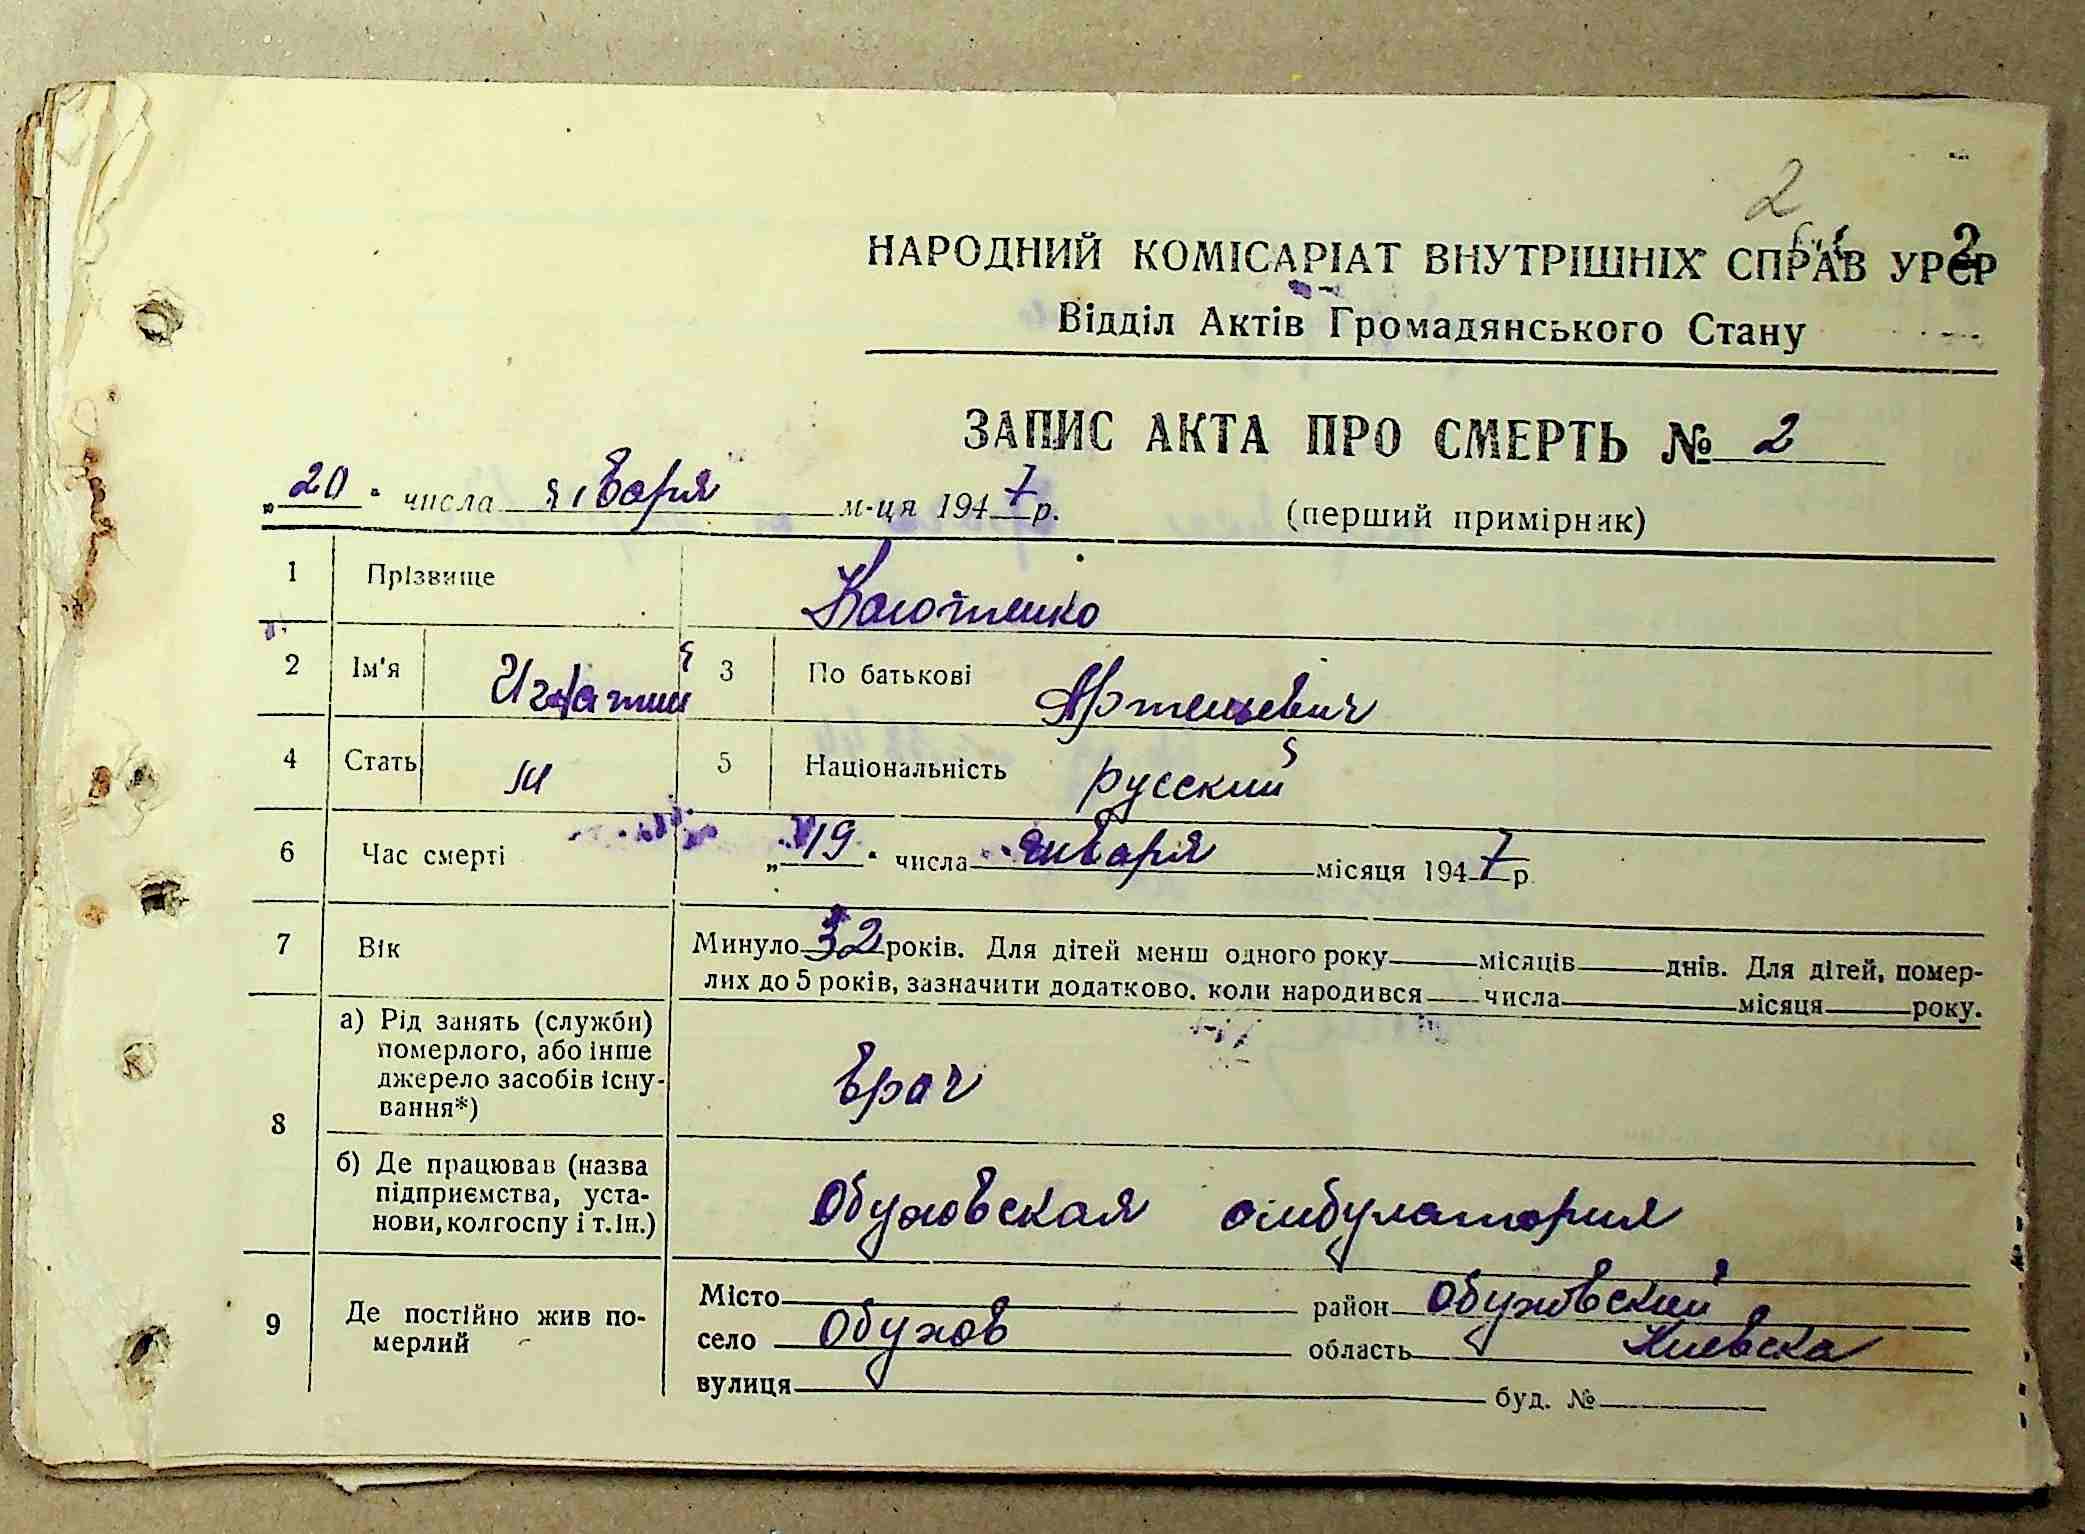 2
2
НАРОДНИЙ КОМІСАРІАТ ВНУТРІШНІХ СПРАВ УРСР
Відділ Актів Громадянського Стану
ЗАПИС АКТА ПРО СМЕРТЬ № 2
„20" числа января м-ця 1947 р. (перший примірник)
1 Прізвище
2 Ім'я Игнатий 3 По батькові Артемьевич
4 Стать м 5 Національність русский
6 Час смерті „19" числа января місяця 1947 р
7 Вік Минуло 32 років. Для дітей менш одного року місяців днів. Для дітей, помер-
лих до 5 років, зазначити додатково. коли народився числа місяця року.
8 а) Рід занять (служби)
померлого, або інше
джерело засобів існу-
вання*) врач
б) Де працював (назва
підприємства, уста-
нови, колгоспу і т.ін.) Обуховская амбулатория
9 Де постійно жив по-
мерлий
Місто район Обуховский
село Обухов область Киевска
вулиця буд. №